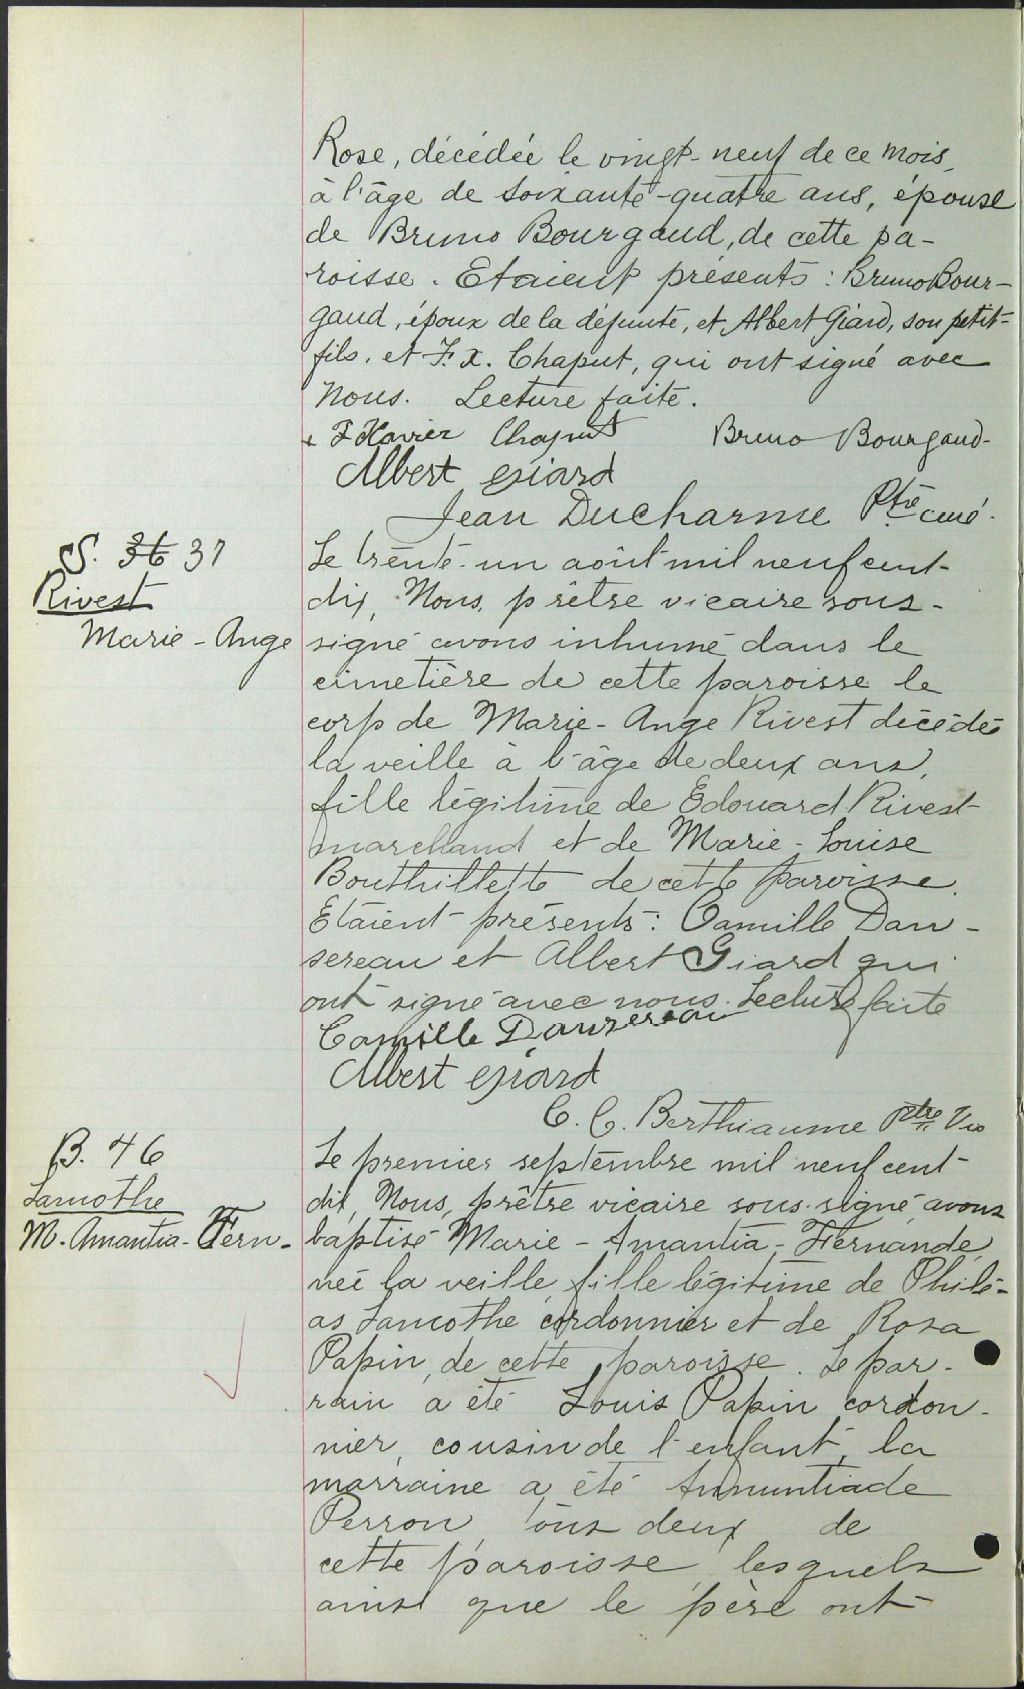 Rose, décédée le vingt-neuf de ce mois,
à l'âge de soixante-quatre ans, épouse
de Bruno Bourgaud, de cette pa-
roisse. Etaient présents : Bruno Bour-
gaud, époux de la défunte, et Albert Giard, son petit-
fils, et F. X. Chaput, qui ont signé avec
nous. Lecture faite.
F Xavier Chaput Bruno Bourgaud
Albert Giard
Jean Ducharme Ptre curé.
S. 36 37
Rivest
Marie-Ange
Le trente-un août mil neuf cent-
dix, Nous, prêtre vicaire sous-
signé avons inhumé dans le
cimetière de cette paroisse le
corp de Marie-Ange Rivest décédée
la veille à l'âge de deux ans,
fille légitime de Edouard Rivest
marchand et de Marie-Louise
Bouthillette de cette paroisse.
Etaient présents : Camille Dan-
sereau et Albert Giard qui
ont signé avec nous. Lecture faite
Camille Dansereau
Albert Giard
C. C. Berthiaume Ptre Vic
B. 46
Lamothe
M. Amantia-Fern.
Le premier septembre mil neuf cent-
dix, Nous, prêtre vicaire sous-signé avons
baptisé Marie-Amantia-Fernande,
née la veille, fille légitime de Philé-
as Lamothe cordonnier et de Rosa
Papin, de cette paroisse. Le par-
rain a été Louis Papin cordon-
nier, cousin de l'enfant, la
marraine a été Annuntiade
Perron, tous deux de
cette paroisse lesquels
ainsi que le père ont